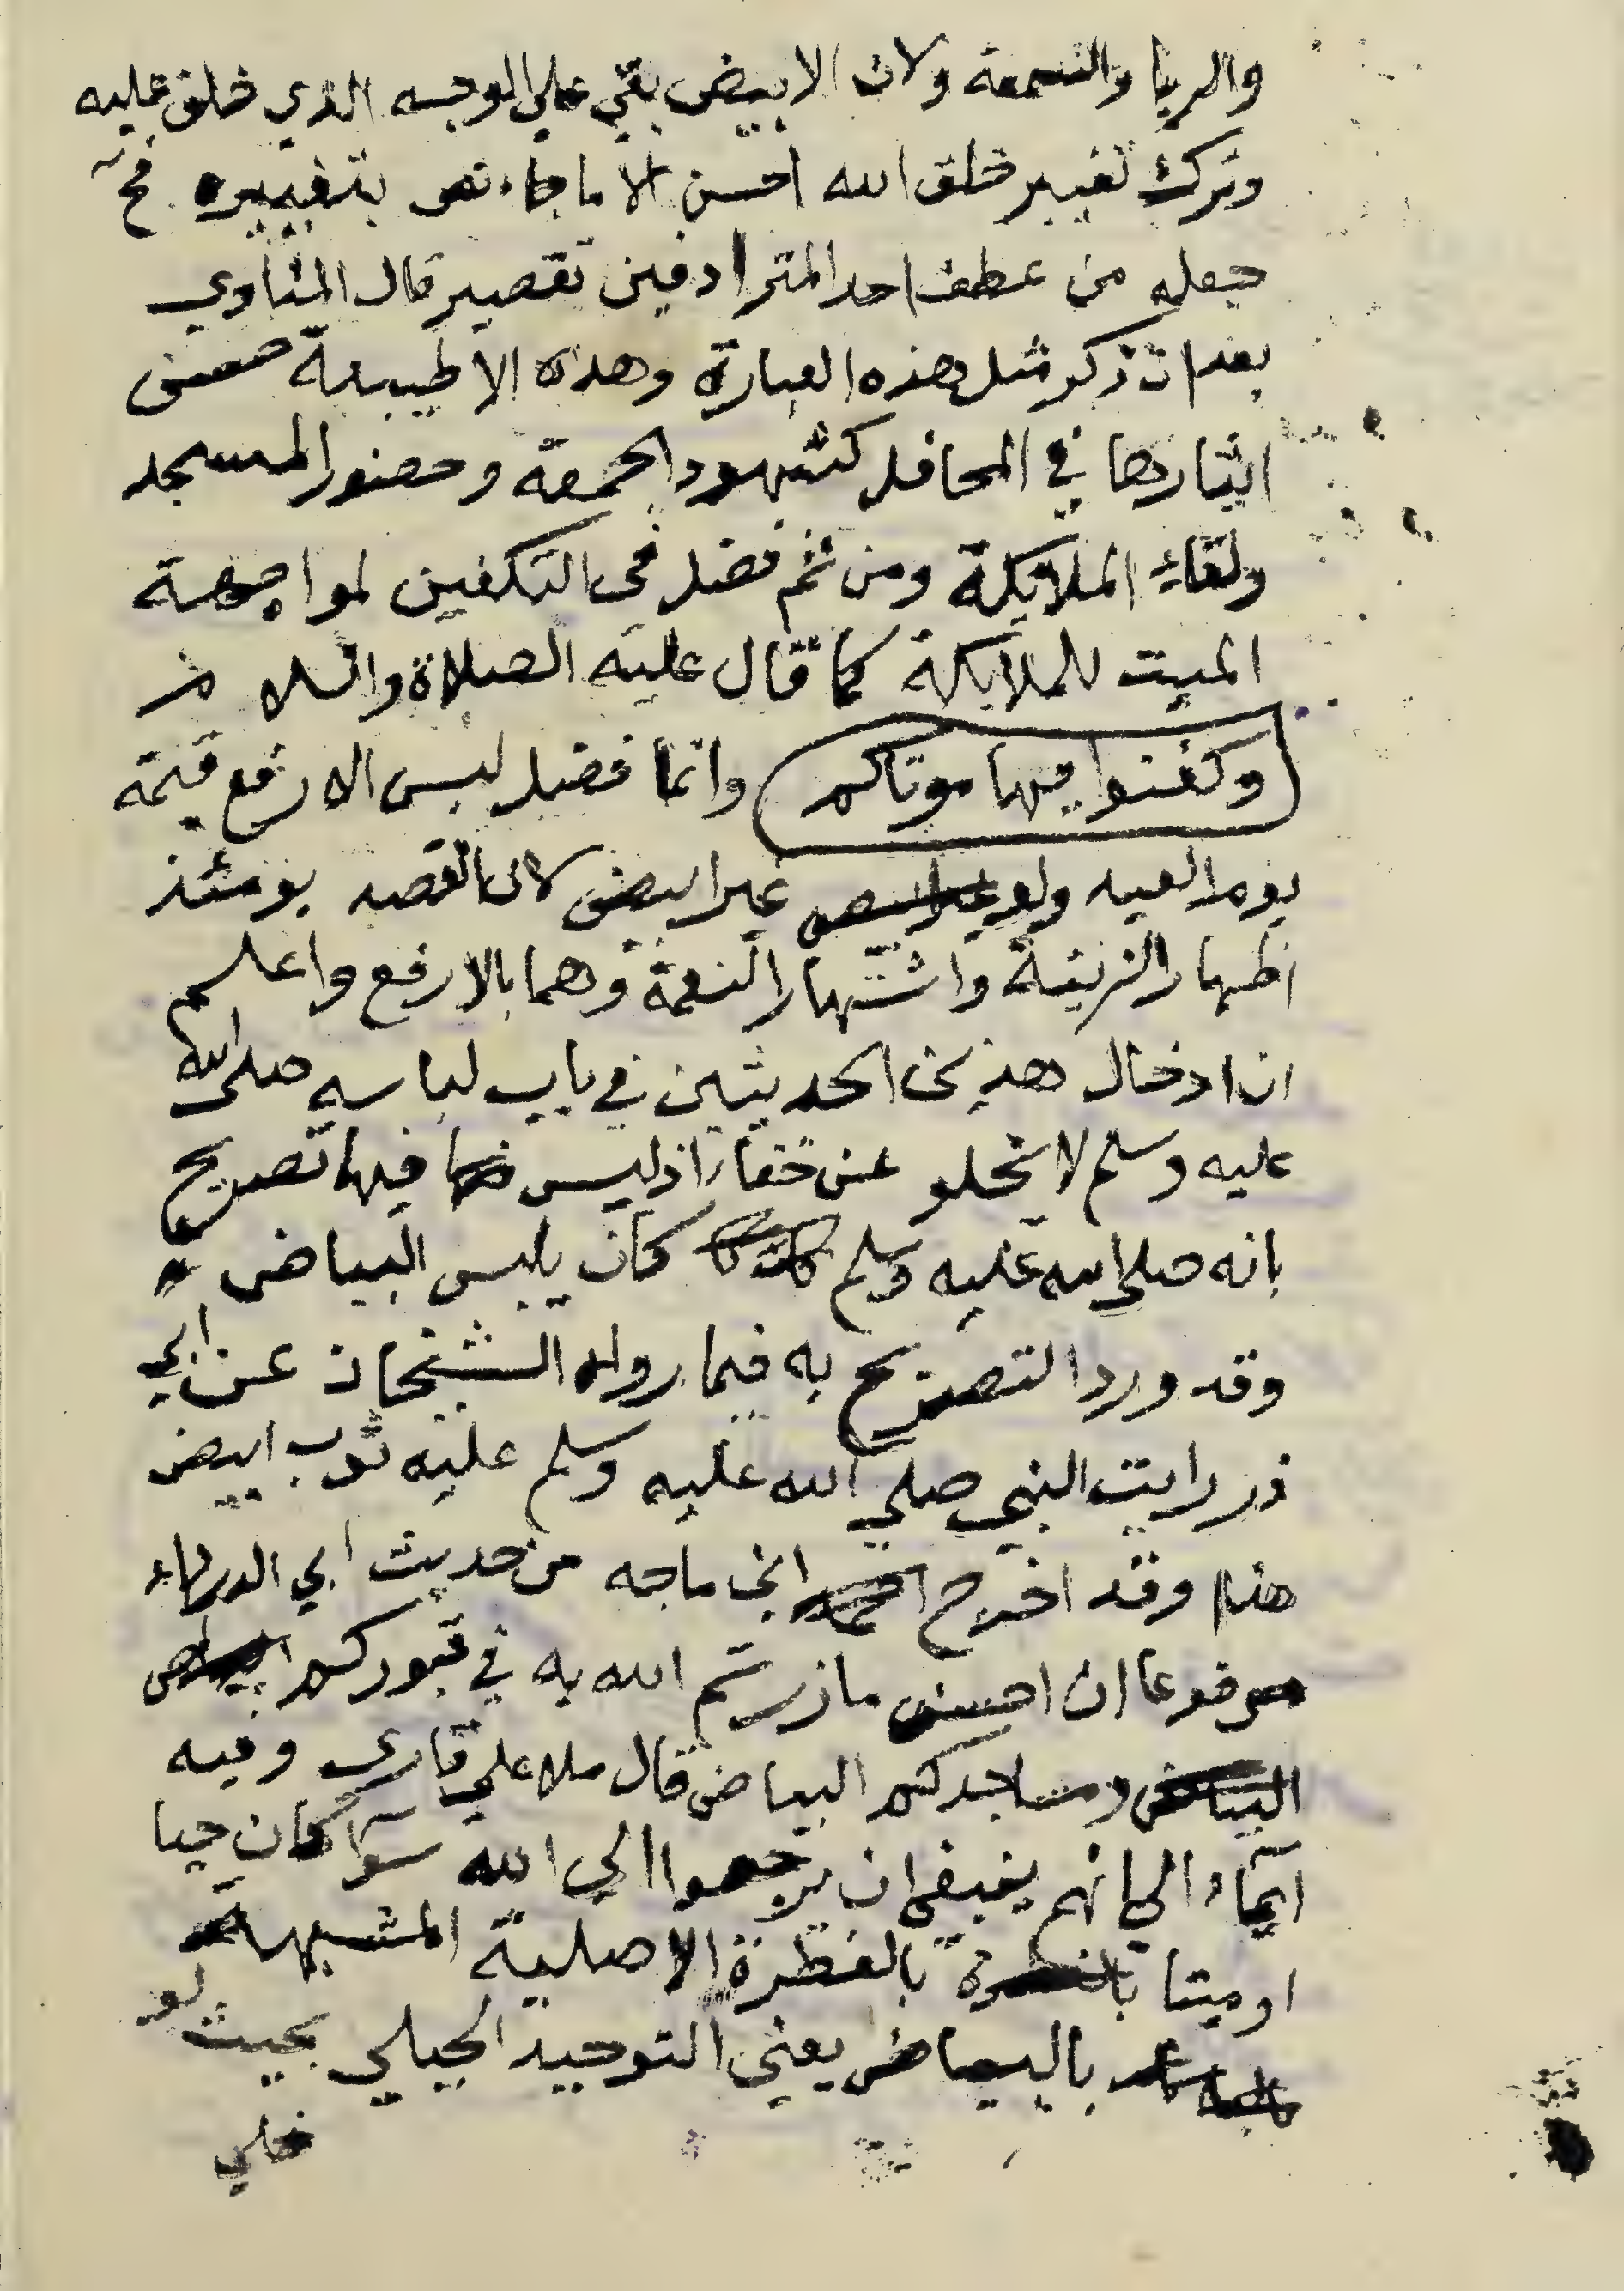 والريا والسمعة ولان الابيض بقي علي الوجه الذي خلق عليه
وترك تغيير خلق الله احسن الا ما جاء نص بتغييره فح
جعله من عطف احد المترادفين تقصير قال المناوي
بعد ان ذكر مثل هذه العبارة وهذه الاطيبية
ايثارها في المحافل كشهود الجمعة وحضور المسجد
ولقاء الملايكة ومن ثم فضل في التكفين لمواجهة
الميت للملايكة كما قال عليه الصلاة والسلام
وكفنوا فيها موتاكم وانما فضل لبس الارفع قيمة
يوم العيد ولو غير ابيض لان القصد يومئذ
اظهار الزينة واشتهار النعمة وهما بالارفع واعلم
ان ادخال هذين الحديثين في باب لباسه صلى الله
عليه وسلم لا يخلو عن خفاء اذ ليس فيها تصريح
بانه صلى الله عليه وسلم كان يلبس البياض
وقد ورد التصريح به فيما رواه الشيخان عن ابي
ذر رايت النبي صلي الله عليه وسلم عليه ثوب ابيض
هذا وقد اخرج ابن ماجه من حديث ابي الدرداء
مرفوعا ان احسن ما زرتم الله به في قبوركم
ومساجدكم البياض قال ملا علي قاري وفيه
ايماء الي انهم ينبغي ان يرجعوا الي الله سوآ كان حيا
او ميتا بالفطرة الاصلية المشبهة
بالبياض يعني التوحيد الجبلي بحيث لو
خلي